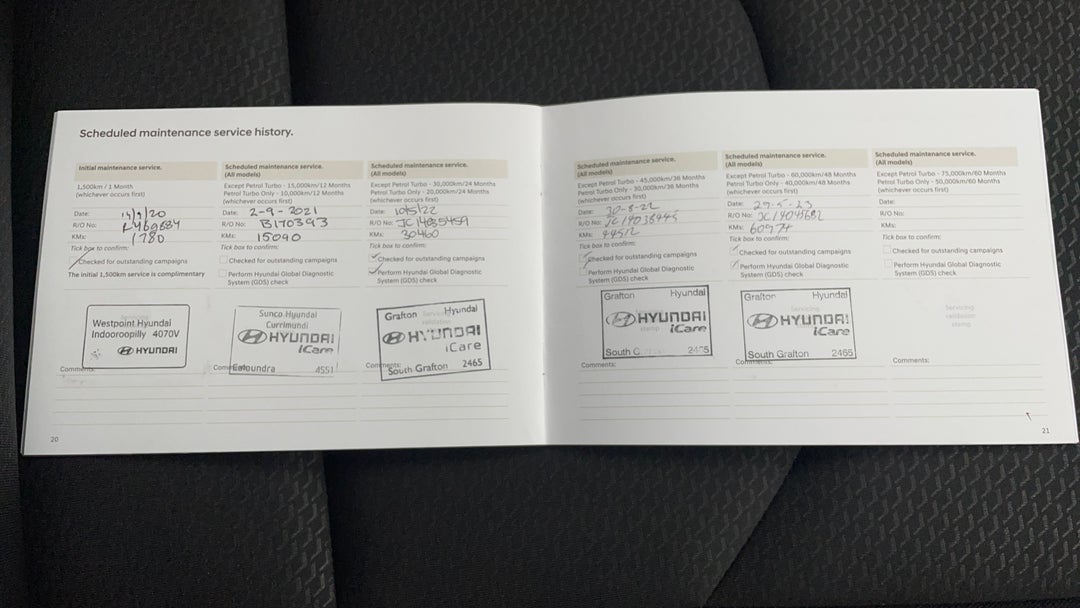 Scheduled maintenance service history.
Initial maintenance service.
1,500km / 1 Month
(whichever occurs first)
Date: 14/9/20
R/O No:
KMs: 1780
Tick box to confirm:
Checked for outstanding campaigns
The initial 1,500km service is complimentary
Westpoint Hyundai
Indooroopilly 4070V
HYUNDAI
Comments:
20
Scheduled maintenance service.
(All models)
Except Petrol Turbo - 15,000km/12 Months
Petrol Turbo Only - 10,000km/12 Months
(whichever occurs first)
Date: 2-9-2021
R/O No: B170393
KMs: 15090
Tick box to confirm:
Checked for outstanding campaigns
Perform Hyundai Global Diagnostic
System (GDS) check
Sunco Hyundai
Currimundi
HYUNDAI
iCare
Caloundra 4551
Scheduled maintenance service.
(All models)
Except Petrol Turbo - 30,000km/24 Months
Petrol Turbo Only - 20,000km/24 Months
(whichever occurs first)
Date:
R/O No: JC14035459
KMs: 30460
Tick box to confirm:
Checked for outstanding campaigns
Perform Hyundai Global Diagnostic
System (GDS) check
Grafton Hyundai
HYUNDAI
iCare
South Grafton 2465
Scheduled maintenance service.
(All models)
Except Petrol Turbo - 45,000km/36 Months
Petrol Turbo Only - 30,000km/36 Months
(whichever occurs first)
Date: 30-8-22
R/O No:
KMs: 44512
Tick box to confirm:
Checked for outstanding campaigns
Perform Hyundai Global Diagnostic
System (GDS) check
Grafton Hyundai
HYUNDAI
stamp iCare
South
Comments:
Scheduled maintenance service.
(All models)
Except Petrol Turbo - 60,000km/48 Months
Petrol Turbo Only - 40,000km/48 Months
(whichever occurs first)
Date: 29-5-23
R/O No:
KMs: 60974
Tick box to confirm:
Checked for outstanding campaigns
Perform Hyundai Global Diagnostic
System (GDS) check
Grafton Hyundai
HYUNDAI
iCare
South Grafton 2465
Comments:
Scheduled maintenance service.
(All models)
Except Petrol Turbo - 75,000km/60 Months
Petrol Turbo Only - 50,000km/60 Months
(whichever occurs first)
Date:
R/O No:
KMs:
Tick box to confirm:
Checked for outstanding campaigns
Perform Hyundai Global Diagnostic
System (GDS) check
Servicing
validation
stamp
Comments:
21